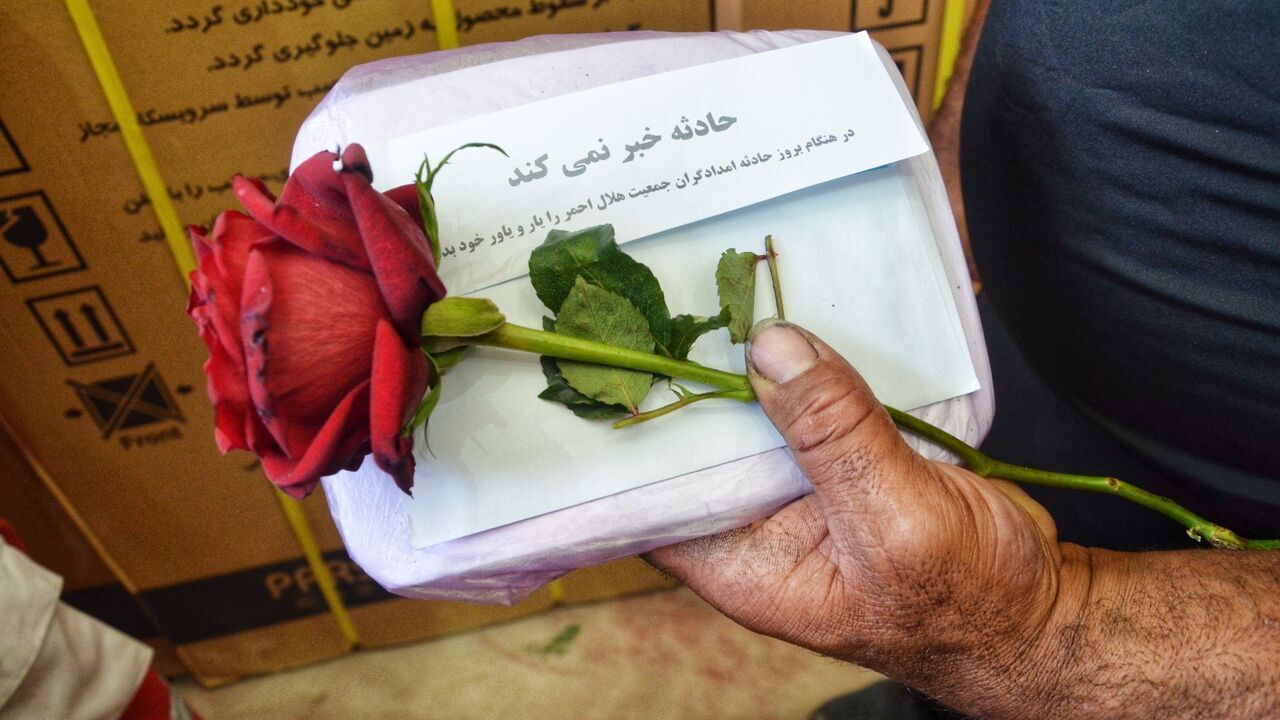 خودداری گردد.
سقوط محصول به زمین جلوگیری گردد.
توسط سرویسکار مجاز
حادثه خبر نمی کند
در هنگام بروز حادثه امدادگران جمعیت هلال احمر را یار و یاور خود بد
Front